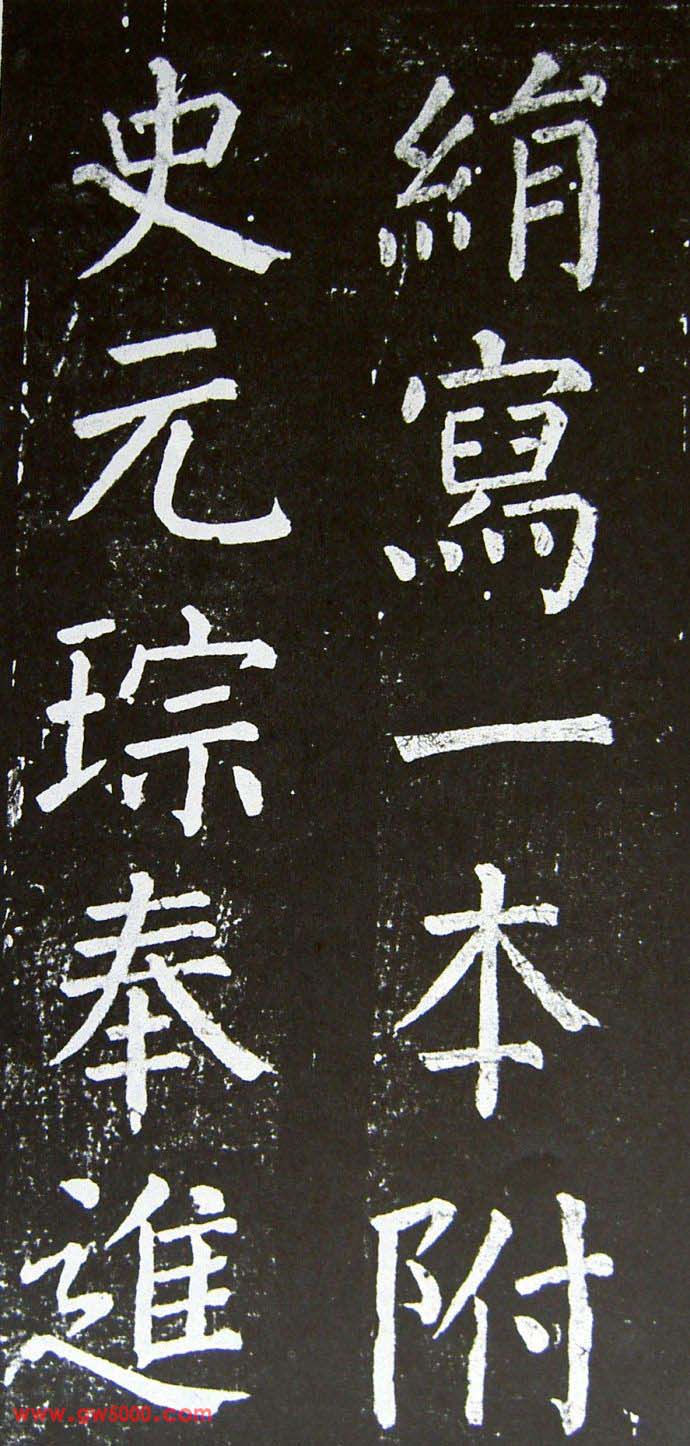 絹寫一本附
史元琮奉進
www.gw5000.com